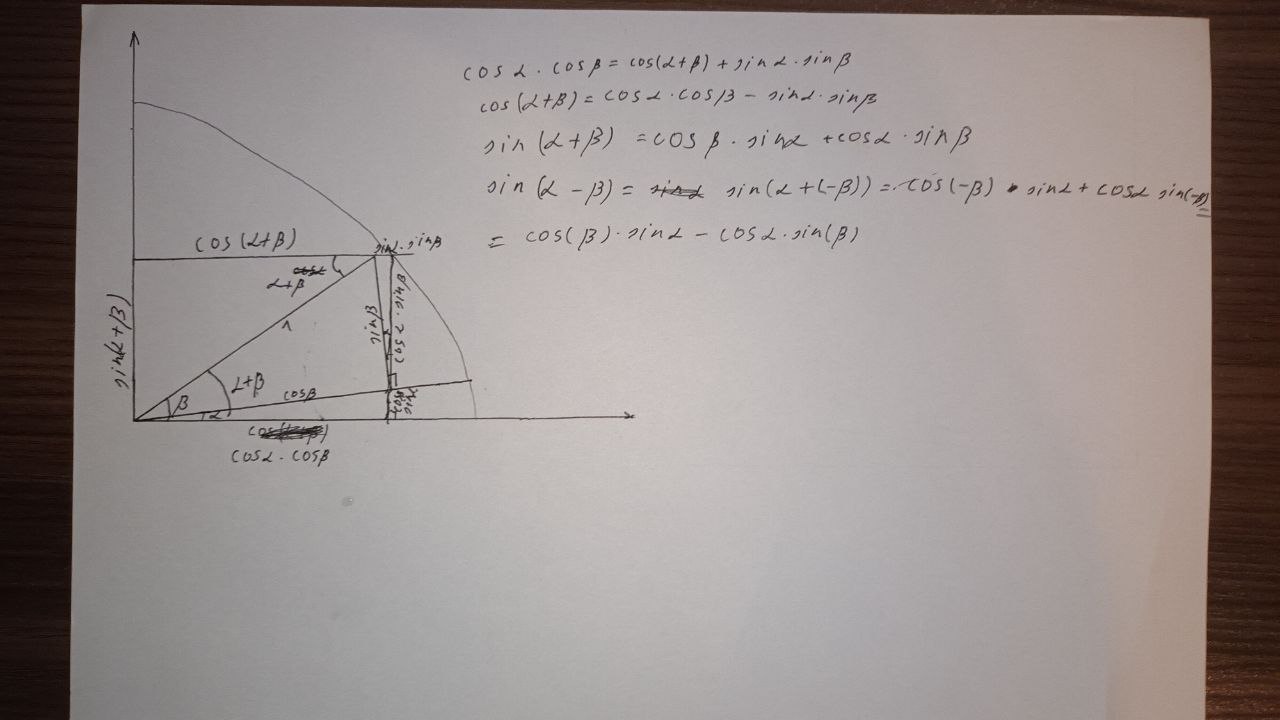 cos α · cosβ = cos(α+β) + sinα · sinβ
cos(α+β) = cosα · cosβ - sinα · sinβ
sin(α+β) = cosβ · sinα + cosα · sinβ
sin(α-β) = sin(α+(-β)) = cos(-β) · sinα + cosα sin(-β) =
= cos(β) · sinα - cosα · sin(β)
cos(α+β)
sinα · sinβ
α+β
sin(α+β)
1
sinβ
cosα · sinβ
α+β
β
α
cosβ
cosα · cosβ